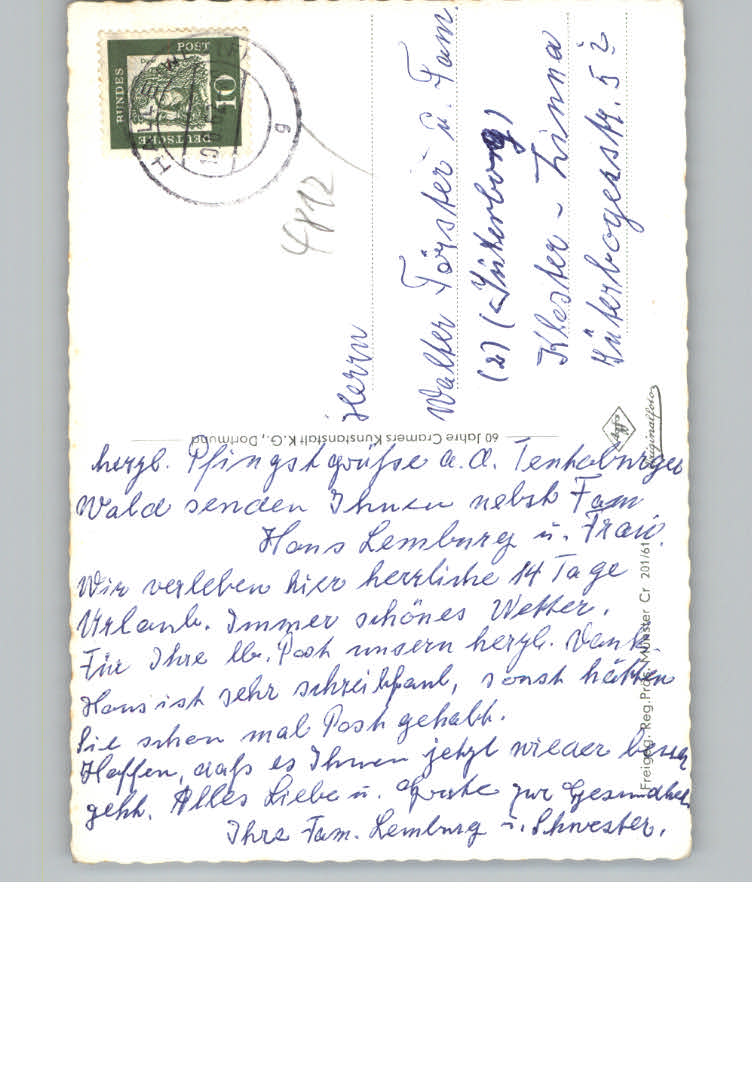 herzl. Pfingstgrüße a. d. Teutoburger
Wald senden Ihnen nebst Fam
Hans Lemburg u. Frau.
Wir verleben hier herrliche 14 Tage
Urlaub. Immer schönes Wetter.
Für Ihre lb. Post unsern herzl. Dank.
Hans ist sehr schreibfaul, sonst hätten
Sie schon mal Post gehabt.
Hoffen, daß es Ihnen jetzt wieder besser
geht. Alles Liebe u. Gute zur Gesundheit
Ihre Fam. Lemburg u. Schwester.
Herrn
Walter Förster u. Fam.
(2) (Jüterbog)
Kloster - Zinna
Jüterbogerstr. 5
4812
DEUTSCHE
BUNDES
POST
10
g
60 Jahre Cramers Kunstanstalt K.G., Dortmund
Agfa
Originalfoto
Freigeg. Reg.Präs. Münster Cr 201/61